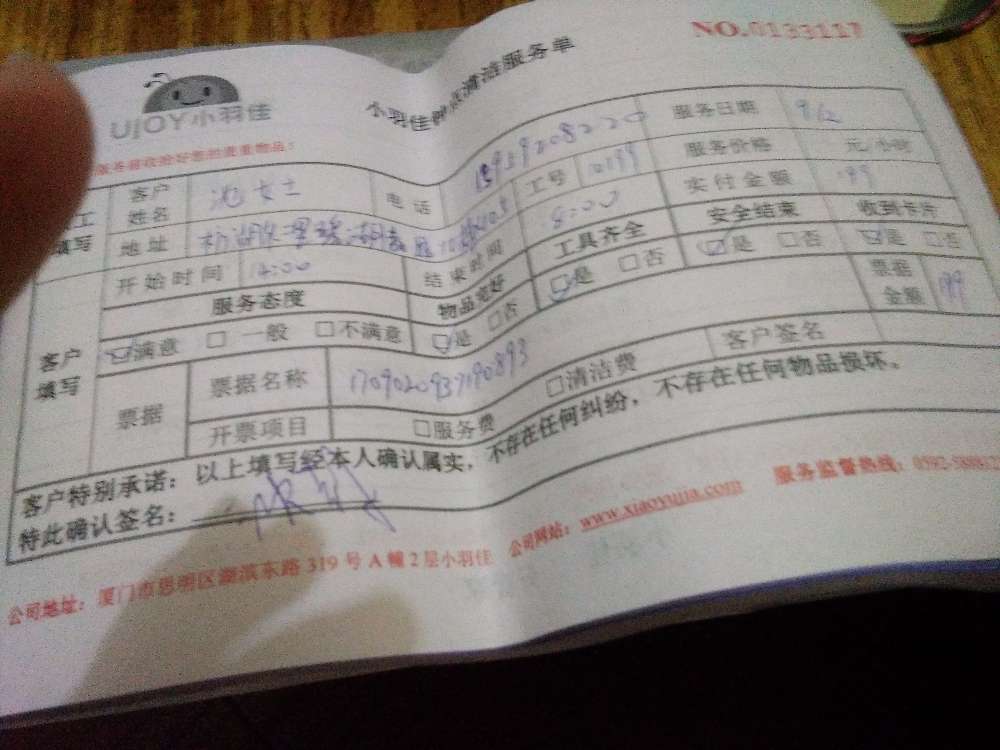 NO.0133117
UJOY小羽佳
小羽佳钟点清洁服务单
客户姓名 沈女士 电话 15959208220 服务日期 9/2
地址 工号 10199 服务价格 元/小时
开始时间 14:00 结束时间 18:00 实付金额 199
服务态度 物品完好 工具齐全 安全结束 收到卡片
客户填写 满意 □ 一般 □不满意 是 □否 是 □否 是 □否 是 □否
票据 票据名称 1709020937190893 票据金额 199
开票项目 □服务费 □清洁费 客户签名
客户特别承诺：以上填写经本人确认属实，不存在任何纠纷，不存在任何物品损坏。
特此确认签名：
公司地址：厦门市思明区湖滨东路 319 号 A 幢 2 层小羽佳 公司网站：www.xiaoyujia.com 服务监督热线：0592-